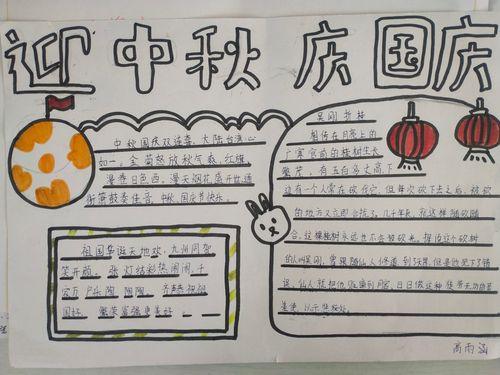 迎中秋庆国庆
中秋国庆双连喜,大陆台湾心
如一。金菊怒放秋气爽,红旗
漫卷日色西。漫天烟花居开地,通
街萧鼓奏佳音。中秋、国庆节快乐。
祖国华诞天地欢,九州同贺
笑开颜。张灯结彩热闹闹,千
家万户乐陶陶。齐声祝祖
国好,繁荣富强更美好。
吴刚折桂
相传在月亮上的
广寒宫前的桂树生长
繁茂,有五百多丈高下
边有一个人常在砍伐它,但每次砍下去之后,被砍
的地方又立即合拢了。几千年来,就这样随砍随
合,这棵桂树永远也不会被砍光。据说这个砍树
的人叫吴刚,曾跟随仙人修道,到了天界,但是他犯了错
误,仙人就把他贬谪到月宫,日日做这种徒劳无功的苦
差使,以示惩处。
高雨涵